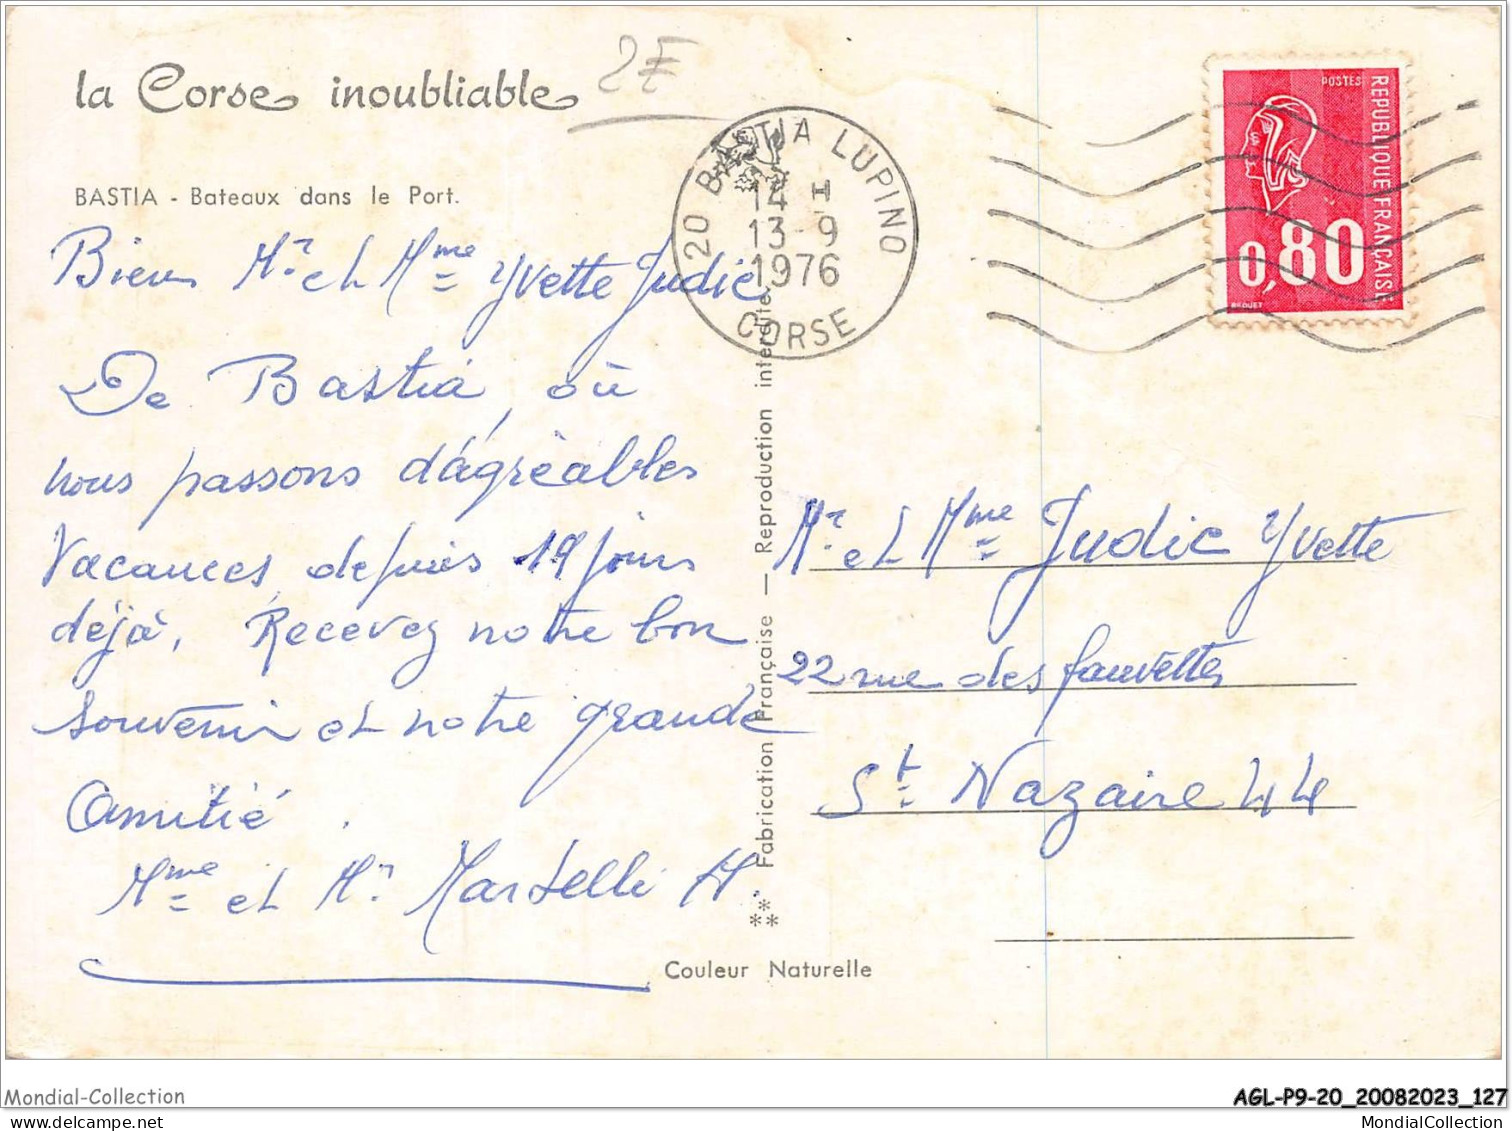 la Corse inoubliable
2€
BASTIA - Bateaux dans le Port.
20 BASTIA LUPINO
14 H
13-9
1976
CORSE
POSTES
REPUBLIQUE FRANÇAISE
0,80
BEQUET
Mr et Mme Yvette Judic
De Bastia, où
nous passons d'agrèables
Vacances, depuis 19 jours
déjà, Recevez notre bon
Souvenir et notre grande
Amitié.
Mme et Mr Martelli
Fabrication Française — Reproduction interdite
Couleur Naturelle
Mr et Mme Judic Yvette
22 rue des fauvettes
St Nazaire 44
Mondial-Collection
AGL-P9-20_20082023_127
MondialCollection